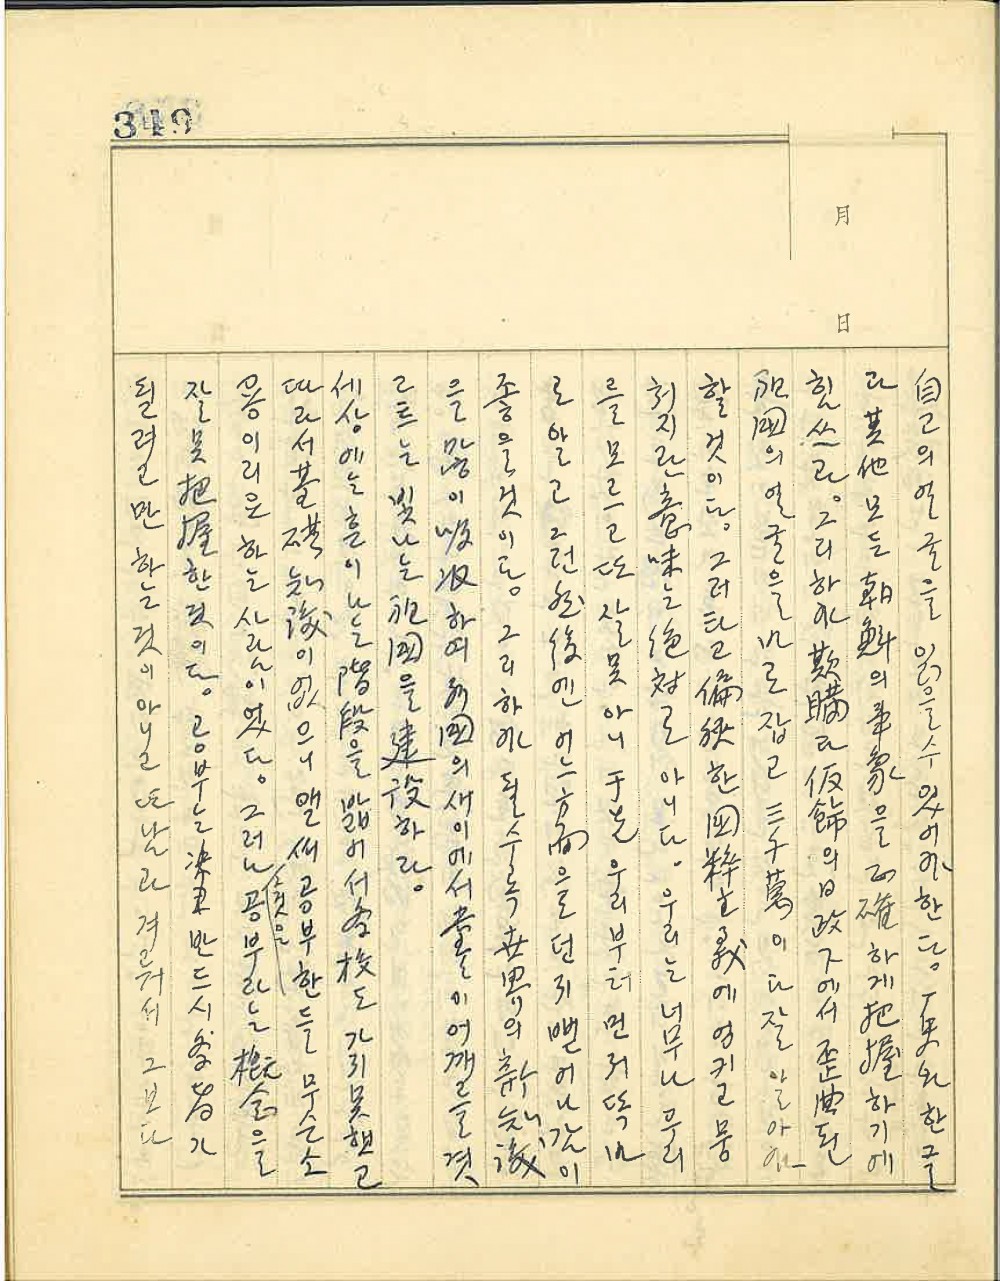 349
月
日
自己의 얼굴을 읽을수 있어야 한다. 歷史와 한글
과 其他 모든 朝鮮의 事象을 正確하게 把握하기에
힘쓰라. 그리하야 欺瞞과 仮飾의 日政下에서 歪曲된
祖國의 얼굴을 바로잡고 三千萬이 다 잘 알아야
할것이다. 그러타고 偏狹한 國粹主義에 엉키고 뭉
취지란 意味는 絶対로 아니다. 우리는 너무나 우리
를 모르고 또 잘못 아니 于先 우리부터 먼저 똑바
로 알고 그런 然後에 어느方面을 던지 뻗어나감이
좋을것이다. 그리하야 될수록 世界의 新知識
을 많이 吸收하며 列國의 새이에서 堂堂이 어깨를 겻
고트는 빛나는 祖國을 建設하라.
세상에는 흔이 나는 階段을 밟어서 学校도 가지못했고
따라서 基礎知識이 없으니 앨써 공부한들 무슨 소
용이리요 하는 사람이 있다. 그러나 공부라는 概念을
것은
잘못 把握한 것이다. 공부는 決코 반드시 学者가
될려고만 하는것이 아닐 또 남과 겨뤄서 그보다